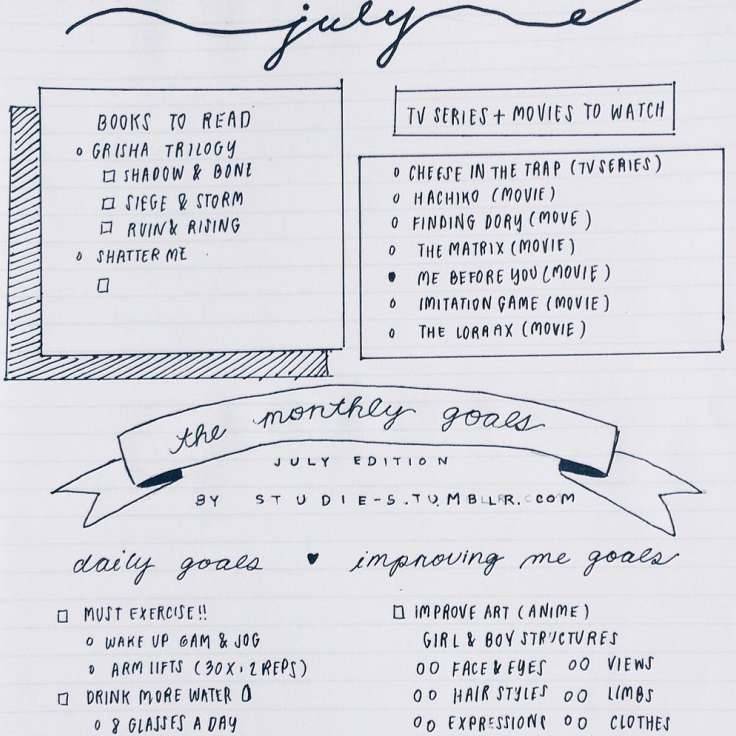 july
BOOKS TO READ
GRISHA TRILOGY
SHADOW & BONE
SIEGE & STORM
RUIN & RISING
SHATTER ME
TV SERIES + MOVIES TO WATCH
CHEESE IN THE TRAP (TV SERIES)
HACHIKO (MOVIE)
FINDING DORY (MOVE)
THE MATRIX (MOVIE)
ME BEFORE YOU (MOVIE)
IMITATION GAME (MOVIE)
THE LORAAX (MOVIE)
the monthly goals
JULY EDITION
BY STUDIE-S.TUMBLR.COM
daily goals ♥ improving me goals
MUST EXERCISE!!
WAKE UP 6AM & JOG
ARM LIFTS (30X, 2 REPS)
DRINK MORE WATER
8 GLASSES A DAY
IMPROVE ART (ANIME)
GIRL & BOY STRUCTURES
FACE & EYES VIEWS
HAIR STYLES LIMBS
EXPRESSIONS CLOTHES